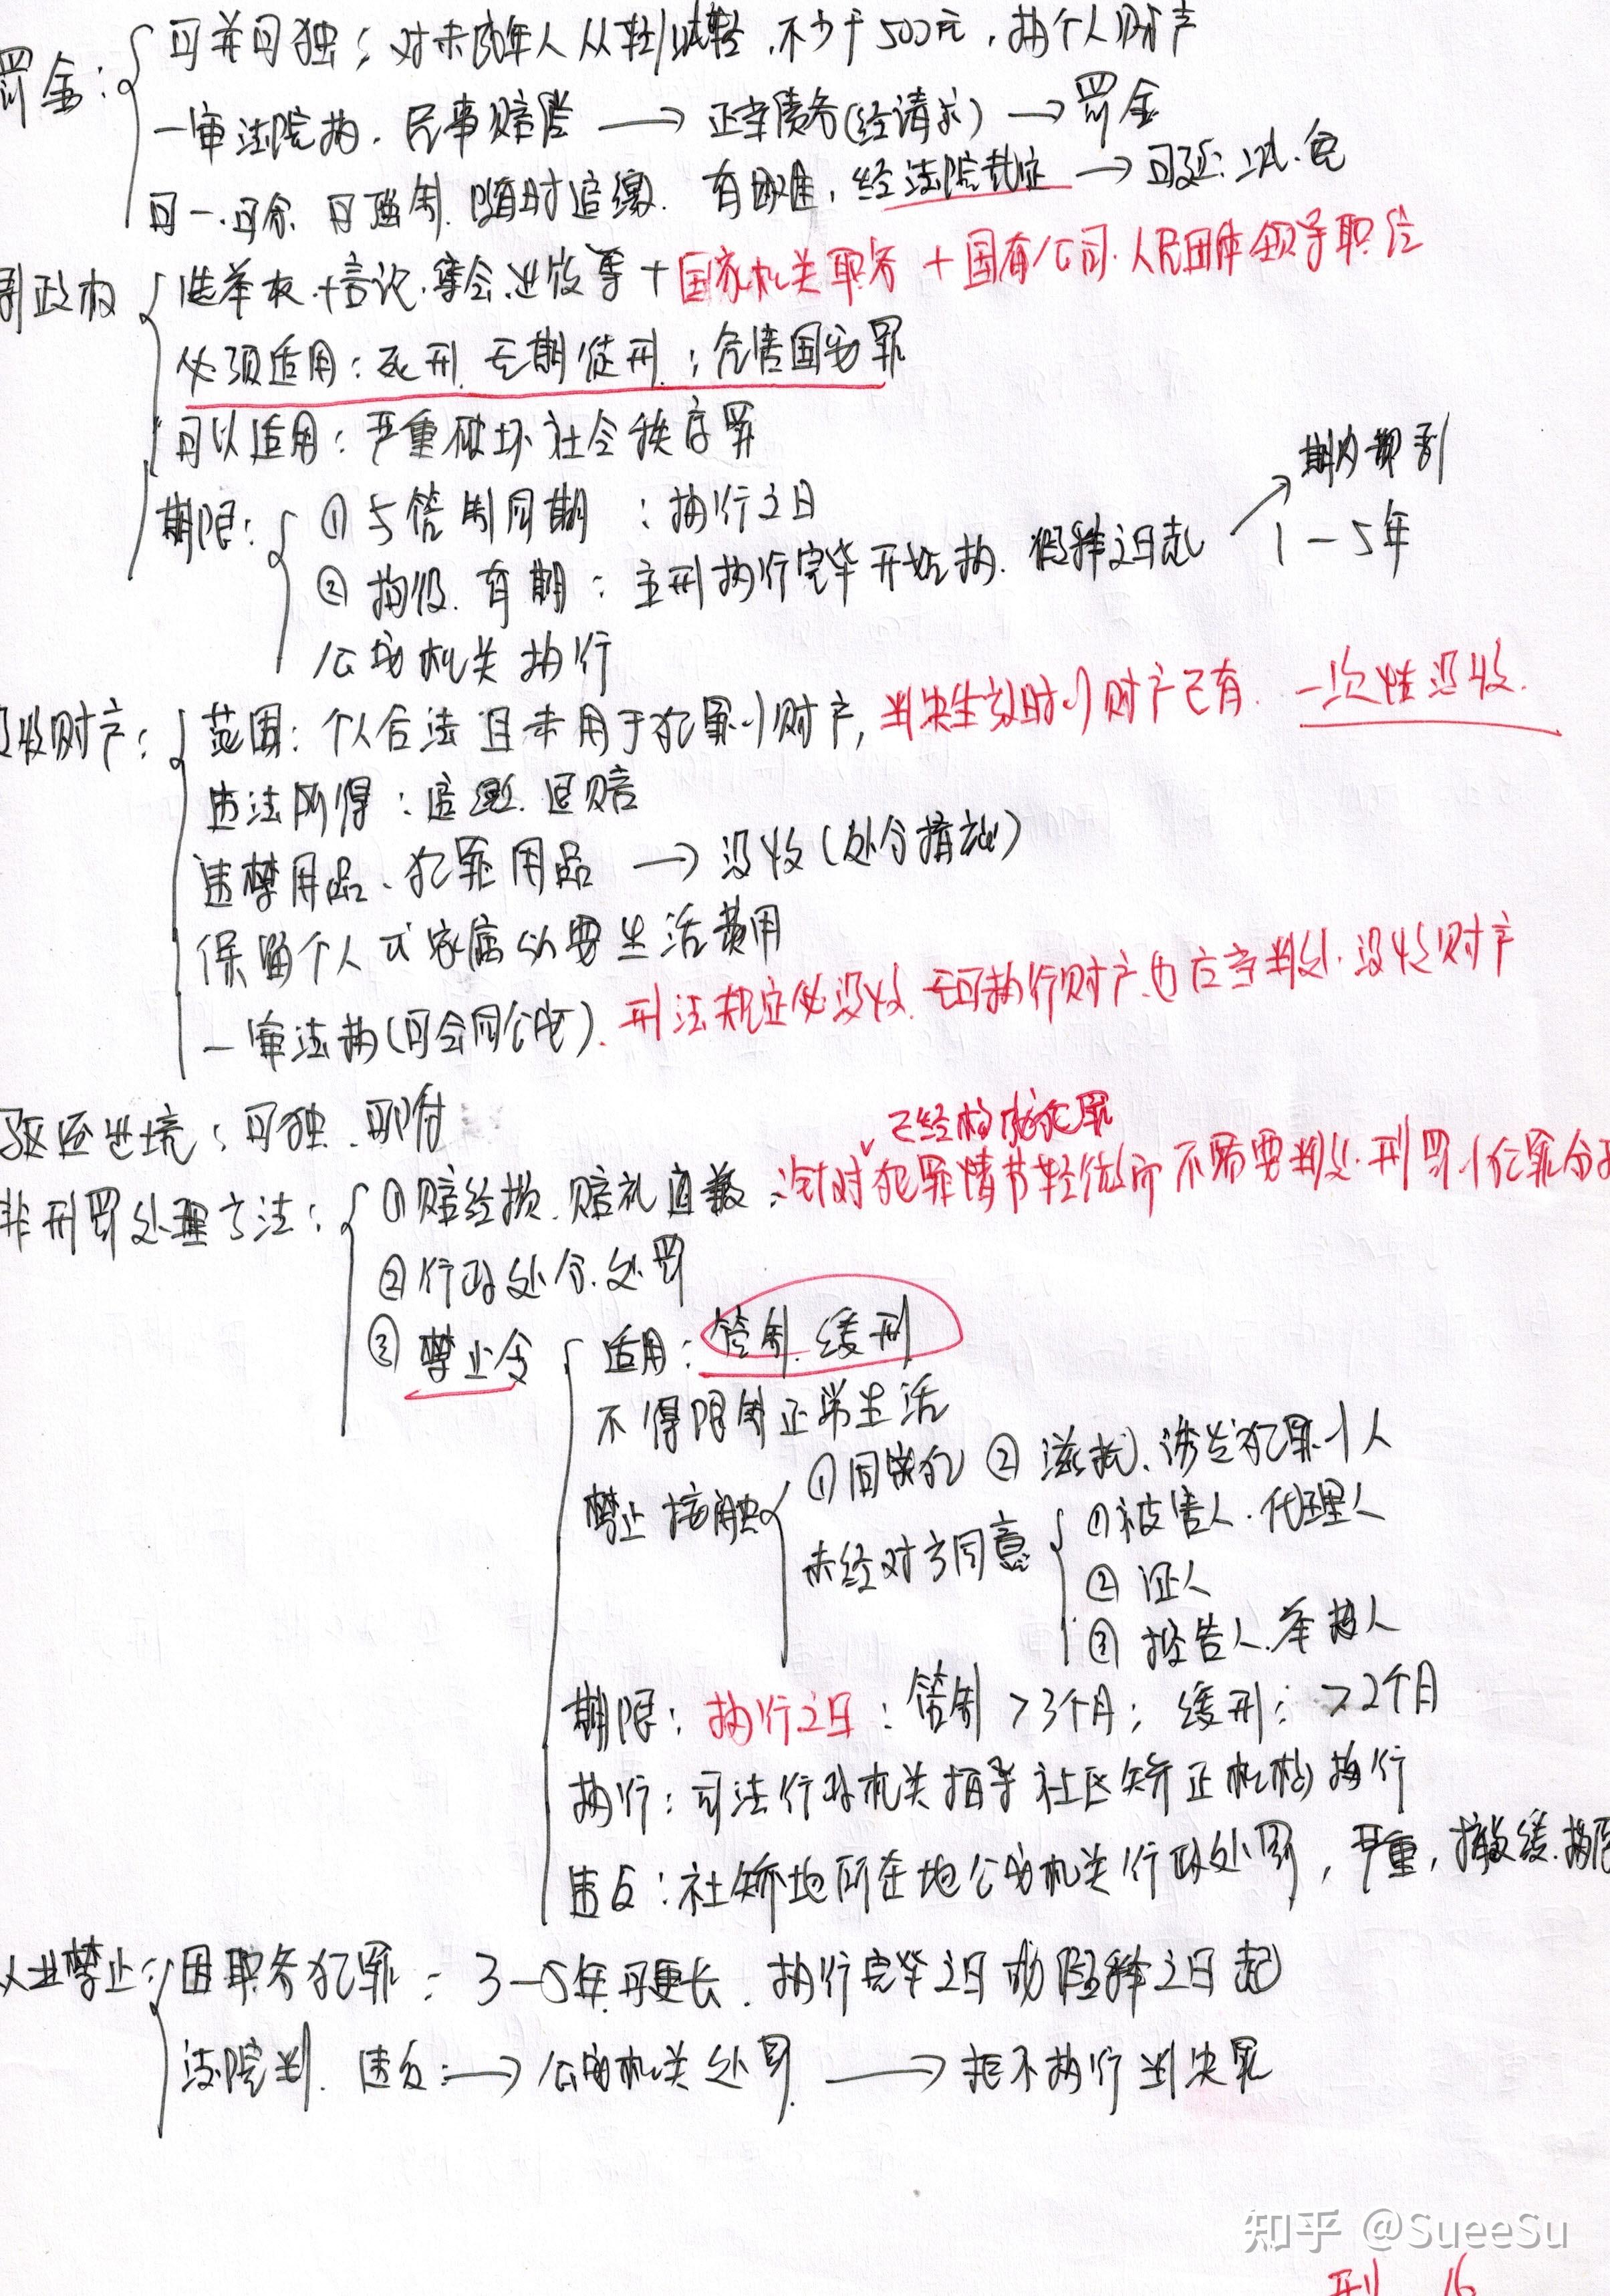 罚金：可并可独；对未成年人从轻/减轻，不少于500元，执个人财产
一审法院执．民事赔偿 → 正当债务(经请求) → 罚金
可一．可分．可强制．随时追缴．有困难，经法院裁定 → 可延．减．免
剥政权 选举权+言论．集会．游等+国家机关职务+国有公司．人民团体领导职位
必须适用：死刑．无期徒刑；危害国安罪
可以适用：严重破坏社会秩序罪
期内都剥
期限：①与管制同期：执行之日
②拘役．有期：主刑执行完毕开始执．假释之日起 1－5年
公安机关执行
没收财产：范围：个人合法且未用于犯罪的财产，判决生效时的财产已有．一次性没收．
违法所得：追缴．退赔
违禁用品、犯罪用品 → 没收(处分措施)
保留个人或家属必要生活费用
一审法执(可会同公安)．刑法规定必没收．无可执行财产也应当判处．没收财产
驱逐出境：可独．可附
已经构成犯罪
非刑罚处理方法：①赔经损．赔礼道歉：针对犯罪情节轻微而不需要判处．刑罚的犯罪分子
②行政处分．处罚
③禁止令 适用：管制．缓刑
不得限制正常生活
禁止接触 ①同案犯 ②滋扰、诱发犯罪的人
未经对方同意 ①被害人．代理人
②证人
③控告人．举报人
期限：执行之日：管制>3个月；缓刑：>2个月
执行：司法行政机关指导社区矫正机构执行
违反：社矫地所在地公安机关行政处罚，严重，撤缓．执原
从业禁止：因职务犯罪：3－5年可更长．执行完毕之日或假释之日起
法院判．违反：→ 公安机关处罚．→ 拒不执行判决罪
知乎 @SueeSu
刑 16